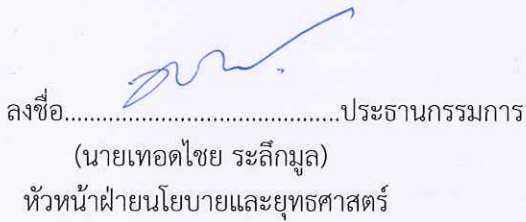 ลงชื่อ.........................................ประธานกรรมการ
(นายเทอดไชย ระลึกมูล)
หัวหน้าฝ่ายนโยบายและยุทธศาสตร์